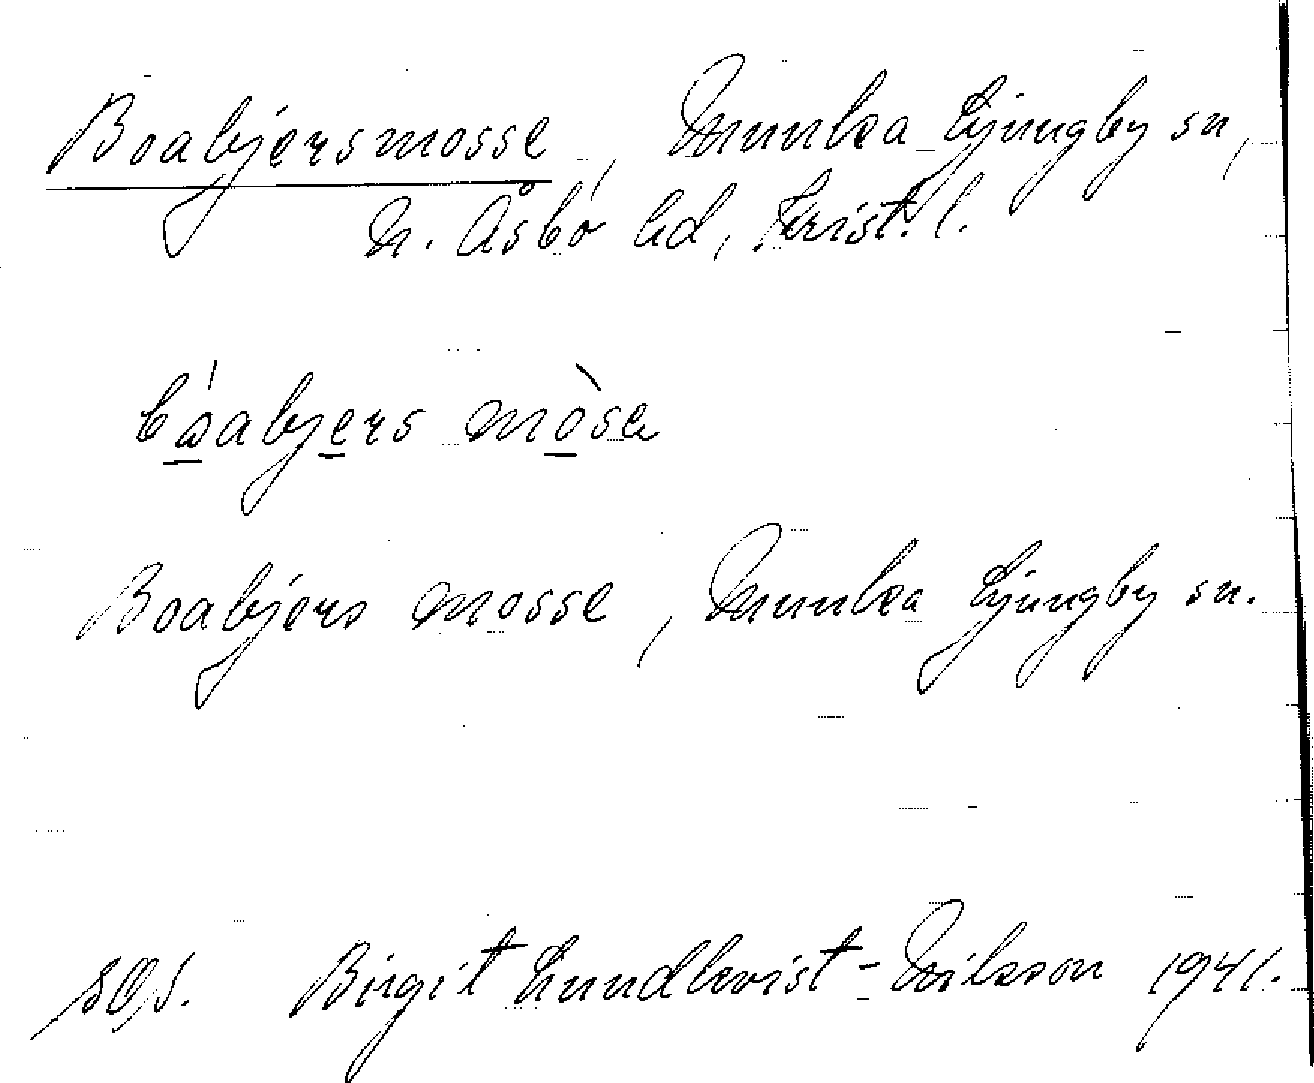 Boabjersmosse, Munka Ljungby sn,
N. Åsbo hd, Krist. l.
bóabjers mòsa
Boabjers mosse, Munka Ljungby sn.
Birgit Lundkvist-Nilsson 1941.